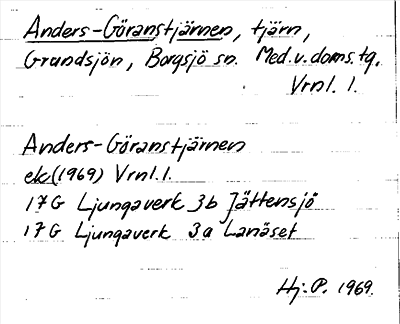 Anders-Göranstjärnen, tjärn,
Grundsjön, Borgsjö sn. Med.v.doms.tg.
Vrnl. l.
Anders-Göranstjärnen
ek(1969) Vrnl.l.
17G Ljungaverk 3b Jättensjö
17G Ljungaverk 3a Lanäset
Hj.P. 1969.